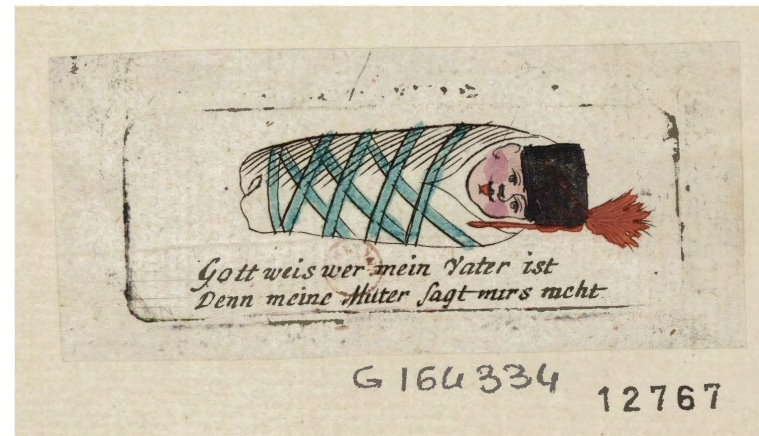 Gott weis wer mein Vater ist
Denn meine Muter sagt mirs nicht
G 164 334
12767